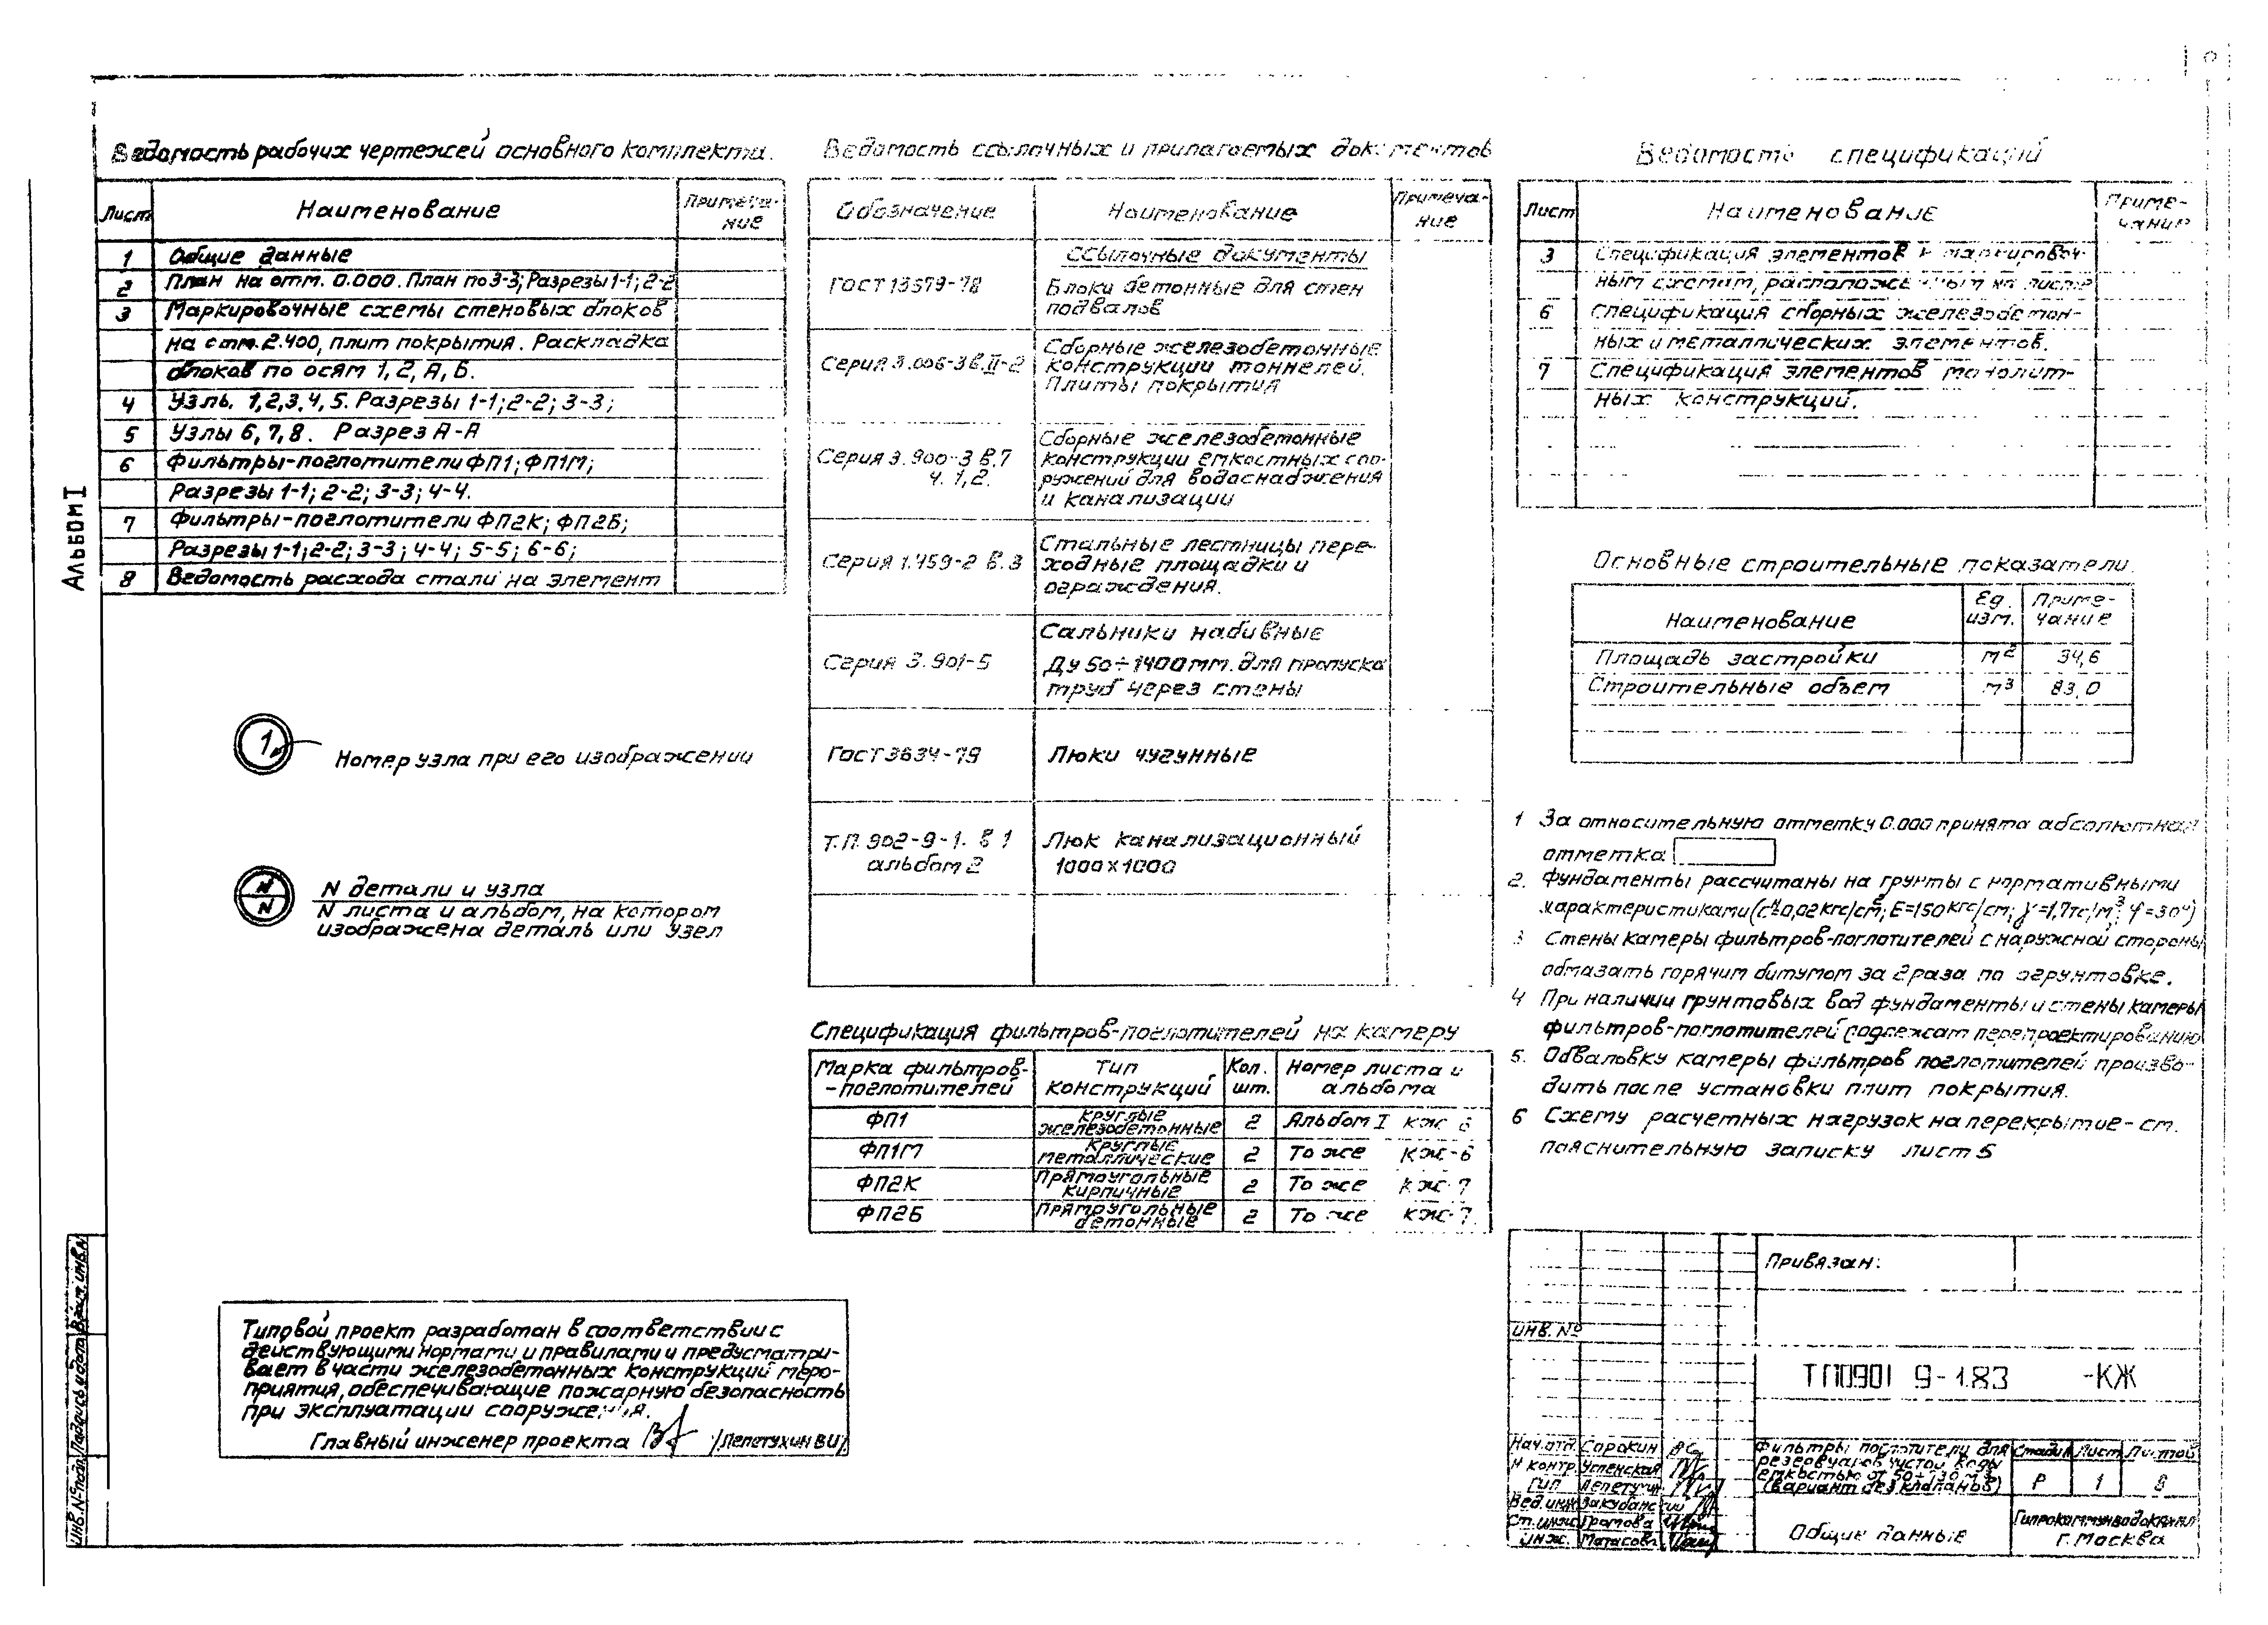 Альбом I
Ведомость рабочих чертежей основного комплекта.
Лист
Наименование
Примеча-
ние
1 Общие данные
2 План на отм. 0.000. План по 3-3; Разрезы 1-1; 2-2
3 Маркировочные схемы стеновых блоков
на отм. 2.400, плит покрытия. Раскладка
блоков по осям 1, 2, А, Б.
4 Узлы 1,2,3,4,5. Разрезы 1-1; 2-2; 3-3;
5 Узлы 6, 7, 8. Разрез А-А
6 Фильтры-поглотители ФП1; ФП1М;
Разрезы 1-1; 2-2; 3-3; 4-4.
7 Фильтры-поглотители ФП2К; ФП2Б;
Разрезы 1-1; 2-2; 3-3; 4-4; 5-5; 6-6;
8 Ведомость расхода стали на элемент
1
Номер узла при его изображении
N
N
N детали и узла
N листа и альбом, на котором
изображена деталь или узел
Типовой проект разработан в соответствии с
действующими нормами и правилами и предусматри-
вает в части железобетонных конструкций меро-
приятия, обеспечивающие пожарную безопасность
при эксплуатации сооружения.
Главный инженер проекта /Лепетухин В.И/
Ведомость ссылочных и прилагаемых документов
Обозначение
Наименование
Примеча-
ние
Ссылочные документы
ГОСТ 13579-78
Блоки бетонные для стен
подвалов
Серия 3.006-3 в.II-2
Сборные железобетонные
конструкции тоннелей.
Плиты покрытия
Серия 3.900-3 в.7
ч. 1,2.
Сборные железобетонные
конструкции емкостных соо-
ружений для водоснабжения
и канализации
Серия 1.459-2 в.3
Стальные лестницы пере-
ходные площадки и
ограждения.
Серия 3.901-5
Сальники набивные
Ду 50÷1400 мм. для пропуска
труб через стены
Гост 3634-79
Люки чугунные
Т.П. 902-9-1. в 1
альбом 2
Люк канализационный
1000×1000
Спецификация фильтров-поглотителей на камеру
Марка фильтров-
-поглотителей
Тип
конструкций
Кол.
шт.
Номер листа и
альбома
ФП1 круглые железобетонные 2 Альбом I КЖ 6
ФП1М круглые металлические 2 То же КЖ-6
ФП2К Прямоугольные кирпичные 2 То же КЖ-7
ФП2Б Прямоугольные бетонные 2 То же КЖ-7.
Ведомость спецификаций
Лист
Наименование
Приме-
чание
3 Спецификация элементов к маркировоч-
ным схемам, расположенным на листе
6 Спецификация сборных железобетон-
ных и металлических элементов.
7 Спецификация элементов монолит-
ных конструкций.
Основные строительные показатели
Наименование
Ед.
изм.
Приме-
чание
Площадь застройки м² 34,6
Строительные объем м³ 83,0
1 За относительную отметку 0.000 принята абсолютная
отметка
2. Фундаменты рассчитаны на грунты с нормативными
характеристиками (сⁿ=0,02 кгс/см²; Е=150 кгс/см; γ=1,7тс/м³; φ=30°)
3 Стены камеры фильтров-поглотителей с наружной стороны
обмазать горячим битумом за 2 раза по огрунтовке.
4 При наличии грунтовых вод фундаменты и стены камеры
фильтров-поглотителей подлежат перепроектированию
5. Обваловку камеры фильтров поглотителей произво-
дить после установки плит покрытия.
6 Схему расчетных нагрузок на перекрытие-см.
пояснительную записку лист 5
Привязан:
ИНВ. №
ТП0901 9-1.83 -КЖ
Нач.отд. Сорокин
Н контр. Успенская
ГИП Лепетухин
Вед.инж Закубанский
Ст.инж Громова
инж.
Фильтры поглотители для
резервуаров чистой воды
емкостью от 50÷
(вариант без клапанов)
Стадия Лист Листов
Р 1 8
Общие данные
Гипрокоммунводоканал
г. Москва
Инв. № подл. Подпись и дата Взам. инв. №